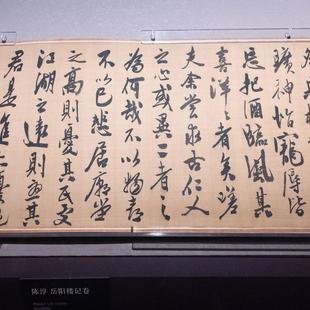 曠神怡寵辱皆
忘把酒臨風其
喜洋洋者矣嗟
夫余嘗求古仁人
之心或異二者之
為何哉不以物喜
不以己悲居廟堂
之高則憂其民處
江湖之遠則憂其
君是進亦憂
陈淳 岳阳楼记卷